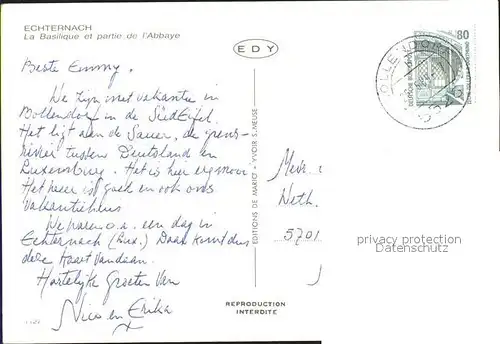 ECHTERNACH
La Basilique et partie de l'Abbaye
EDY
Beste Emmy,
We zijn met vakantie in
Bollendorf in de SüdEifel.
Het ligt aan de Sauer, de grens-
rivier tussen Deutsland en
Luxemburg. Het is hier erg mooi
Het weer is goed en ook ons
vakantiehuis
We waren o.a. een dag in
Echternach (Lux.) Daar komt dus
deze kaart vandaan.
Hartelijke Groeten van
Nico en Erika
X
EDITIONS DE MARIOT • YVOIR S. MEUSE
REPRODUCTION
INTERDITE
Mevr.
Neth.
5701
80
DEUTSCHE BUNDESPOST
privacy protection
watermark